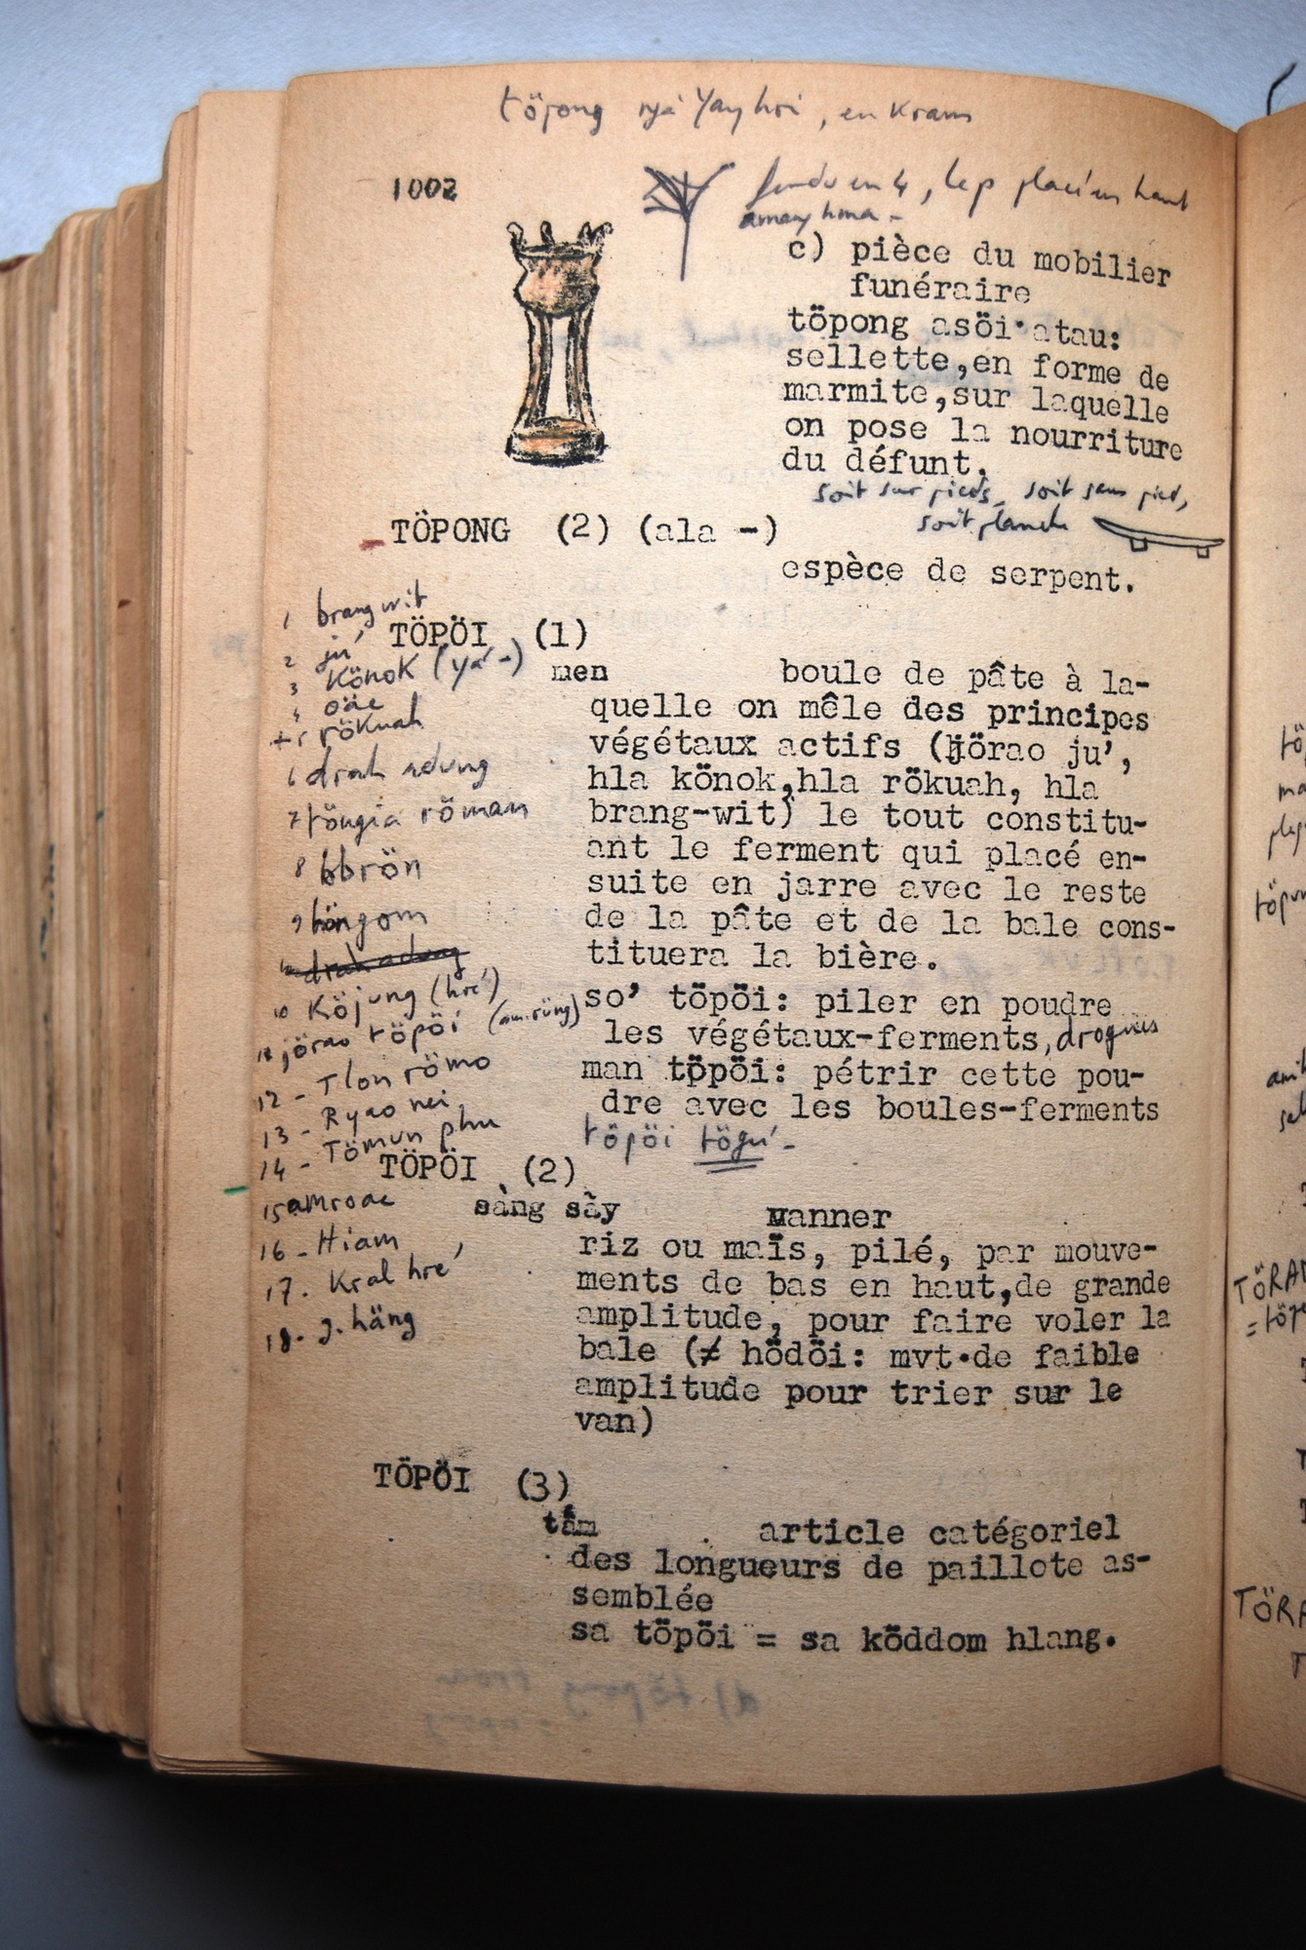 töpong nya' Yang hri, en Kram
1002
fendu en 4, le p placé en haut
amang hma -
c) pièce du mobilier
funéraire
töpong asöi·atau:
sellette,en forme de
marmite,sur laquelle
on pose la nourriture
du défunt.
soit sur pieds, soit sans pied,
soit planche
TÖPONG (2) (ala -)
espèce de serpent.
1 brang wit
TÖPÖI (1)
2 ju'
3 Könok (ya' -)
men boule de pâte à la-
quelle on mêle des principes
végétaux actifs (jörao ju',
hla könok,hla rökuah, hla
brang-wit) le tout constitu-
ant le ferment qui placé en-
suite en jarre avec le reste
de la pâte et de la bale cons-
tituera la bière.
so' töpöi: piler en poudre
les végétaux-ferments, drogues
man töpöi: pétrir cette pou-
dre avec les boules-ferments
töpöi tögu' -
4 öäe
+5 rökuah
6 drah adung
7 töngia röman
8 bbrön
9 höngom
drah adung
10 Köjung (hre')
11 jörao töpöi (am. rüng)
12 - Tlon römo
13 - Ryao nei
14 - Tömun phu
TÖPÖI (2)
15 amroae
sàng sãy vanner
16 - Hiam
riz ou maïs, pilé, par mouve-
17. Kral hre'
ments de bas en haut,de grande
18. g. häng
amplitude, pour faire voler la
bale (≠ hödöi: mvt·de faible
amplitude pour trier sur le
van)
TÖPÖI (3)
tấm article catégoriel
des longueurs de paillote as-
semblée
sa töpöi = sa köddom hlang.